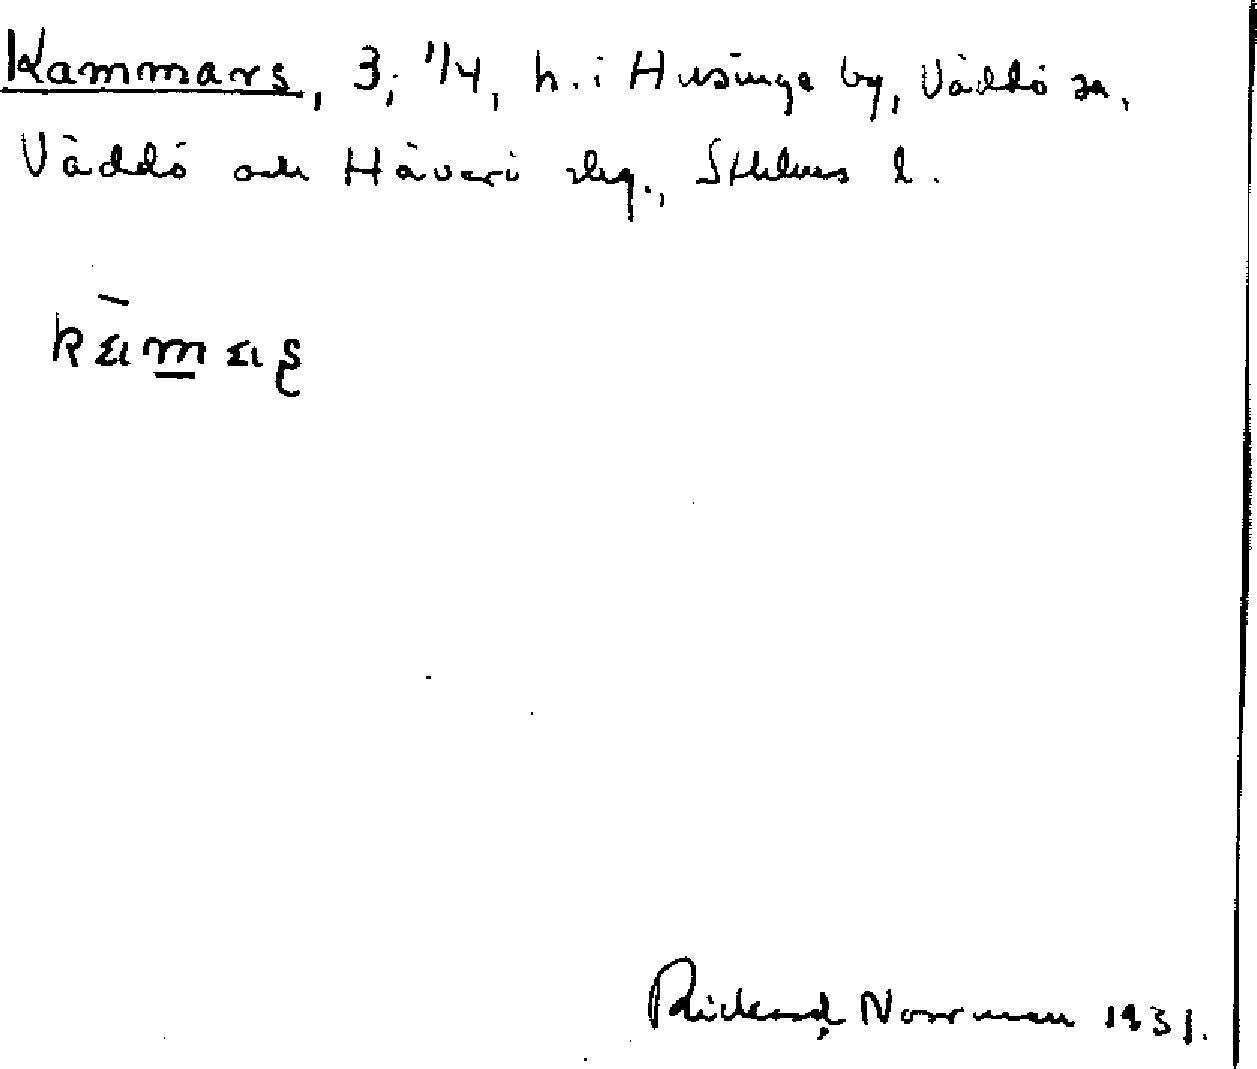 Kammars, 3; 1/4, h. i Husinge by, Väddö sn,
Väddö och Häverö skg., Sthlms l.
Rickard Norrman 1931.